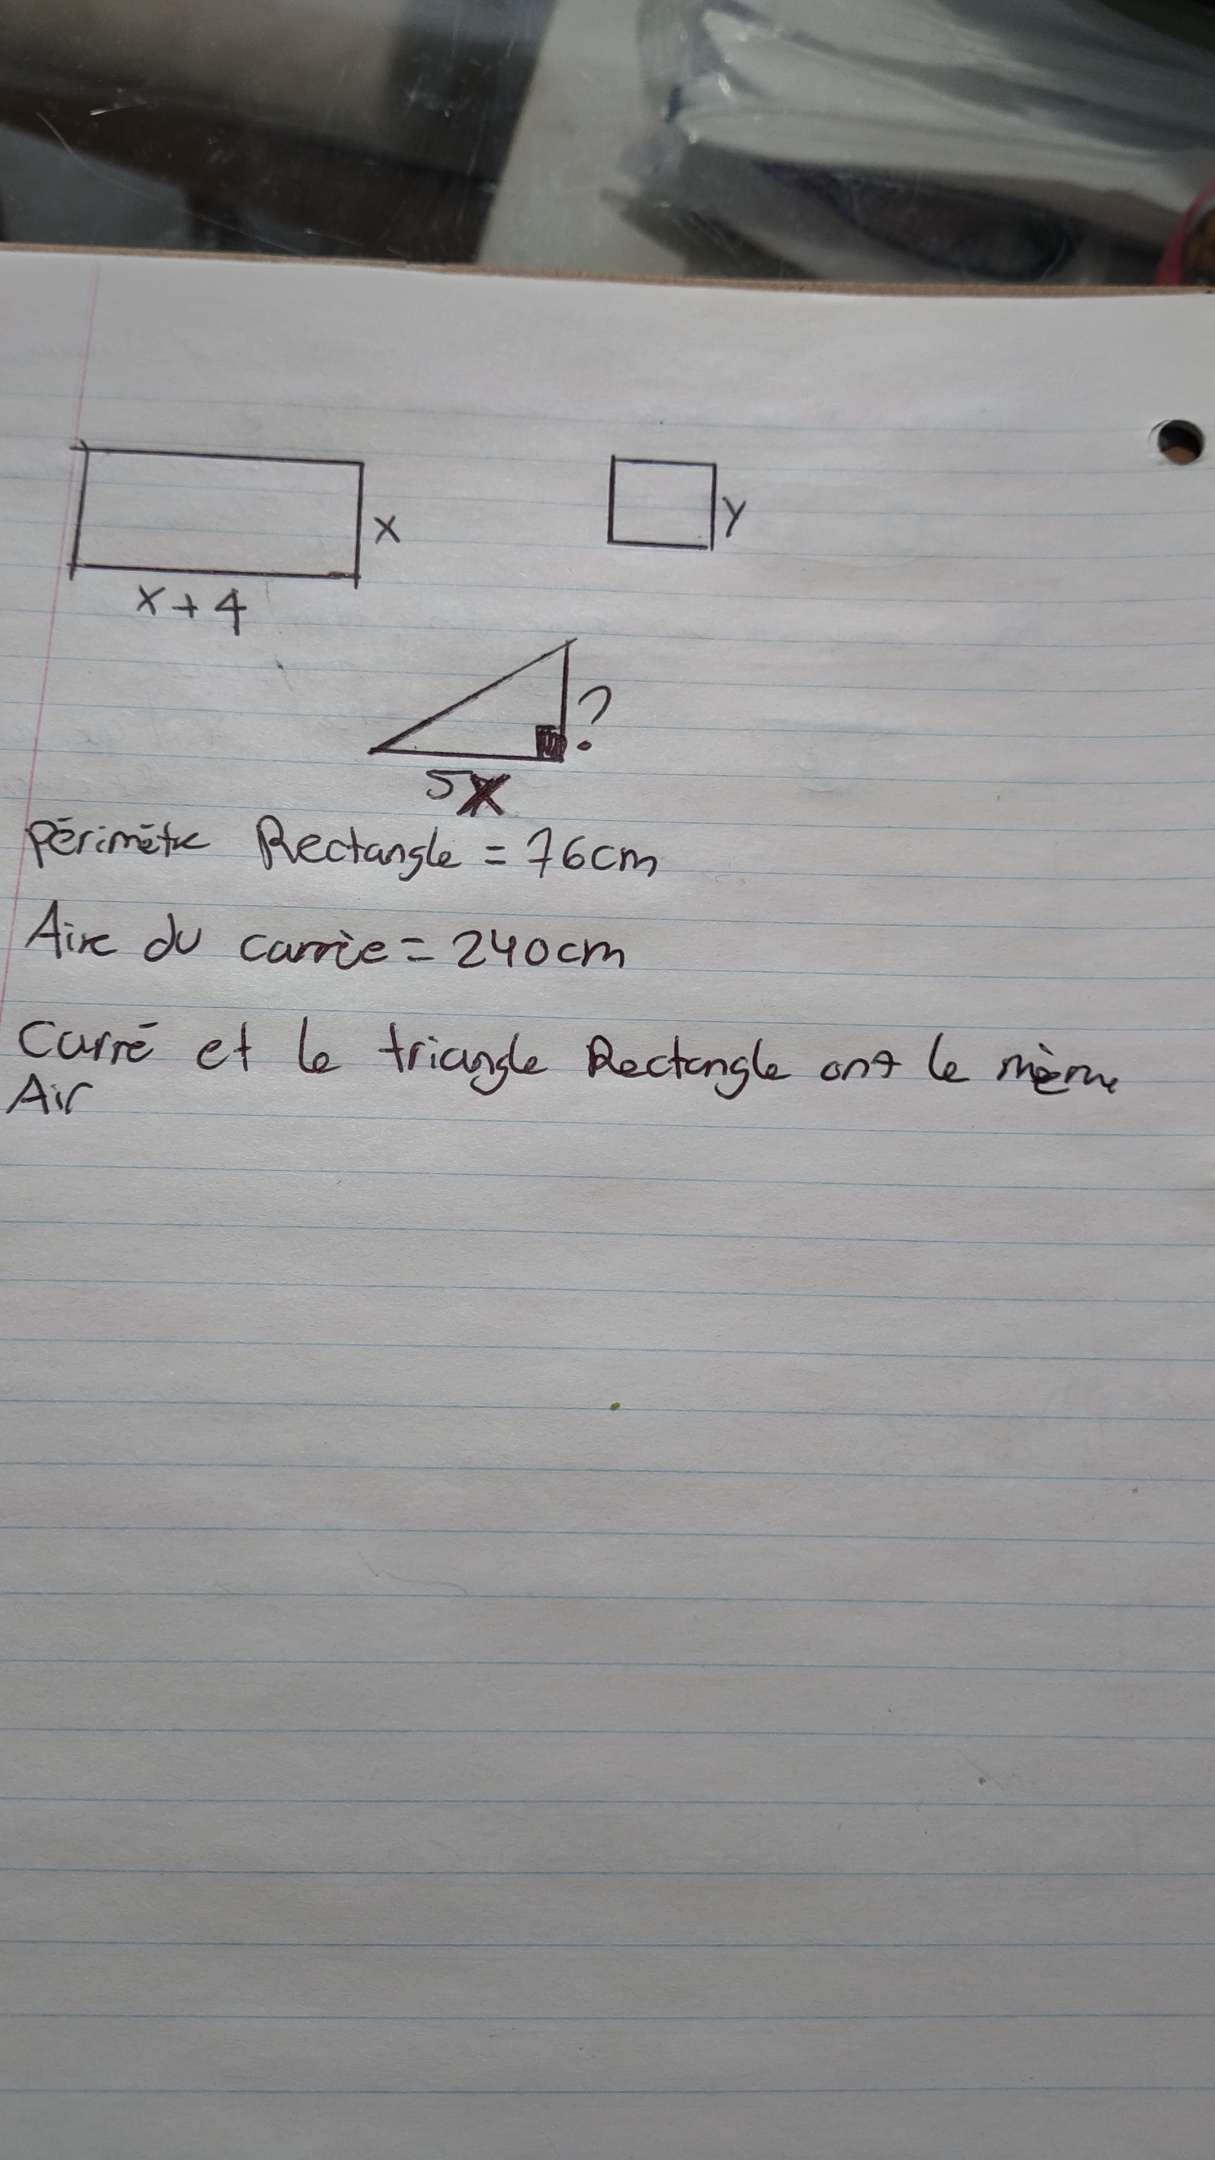 x
y
x+4
?
5x
Périmètre Rectangle = 76cm
Aire du carrée = 240cm
Carré et le triangle Rectangle ont le même
Air